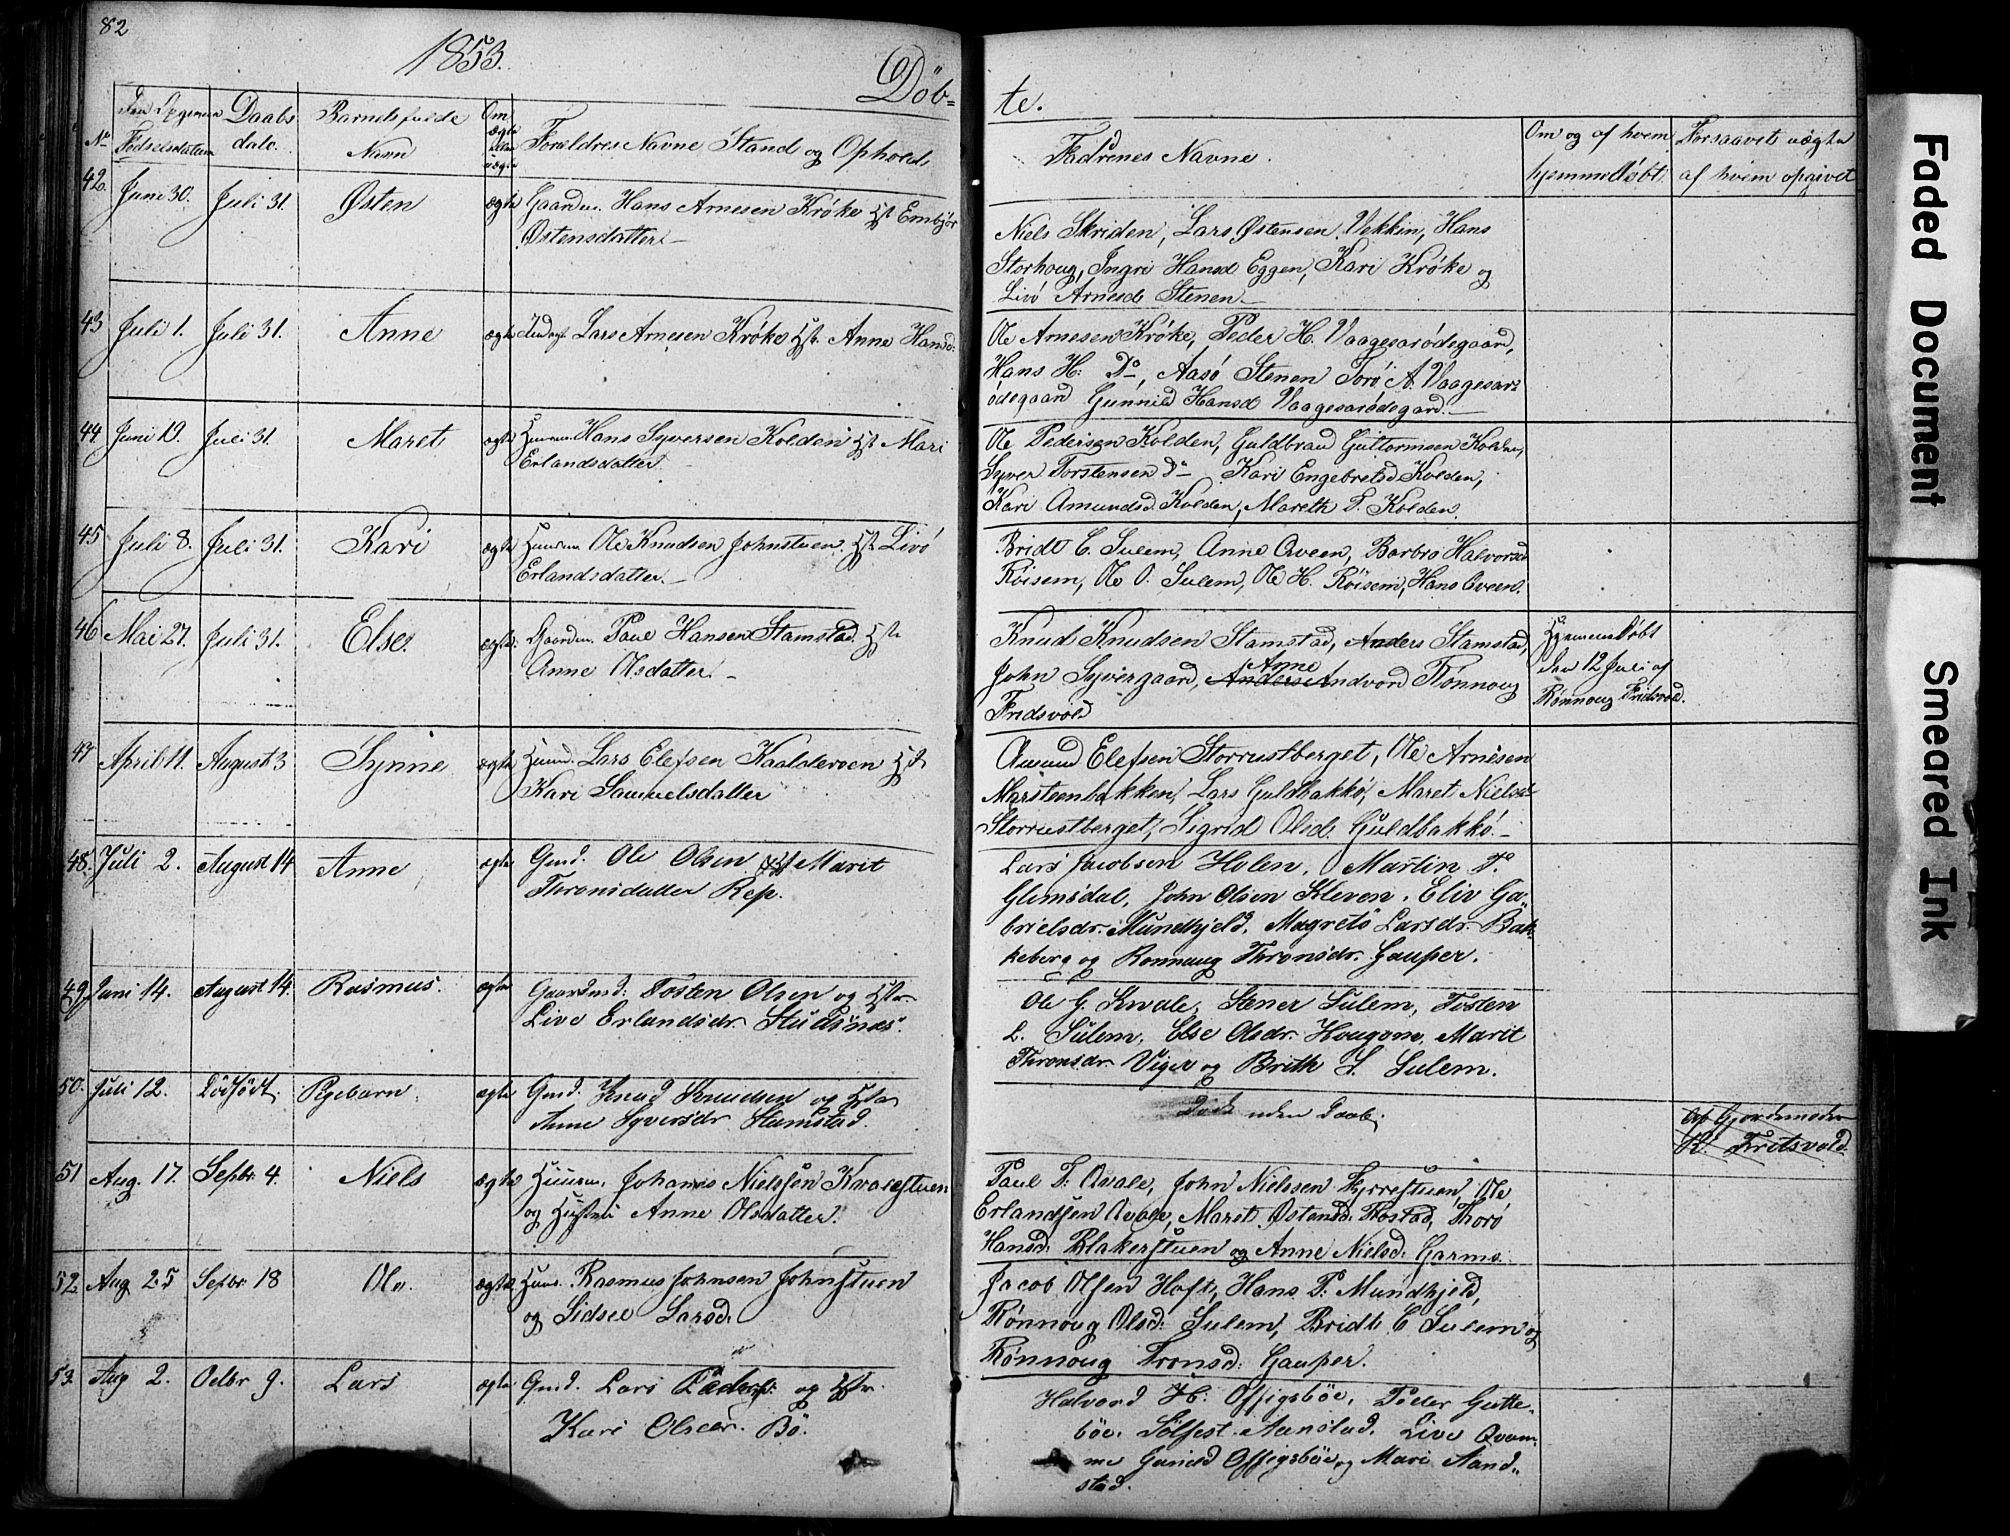 82
1853.
Døb=
te.
No
Fødselsdatum
Daabs
dato.
Barnets fulde
Navn
Om
ægte
eller
uægte
Forældres Navne Stand og Ophold
Fadrenes Navne.
Om og af hvem
hjemmedøbt
af hvem opgivet
42.
Juni 30.
Juli 31.
Østen
ægte
Gaardm. Hans Arnesen Krøke Hst. Embjør
Østensdatter
Niels Skriden, Lars Østensen Vekkin, Hans
Storhoug, Ingri Hansd Eggen, Kari Krøke og
Livø Arnesd Stenen
43
Juli 1.
Juli 31.
Anne
ægte
Lars Arnesen Krøke Hst. Anne Hansd:
Ole Arnesen Krøke, Peder H. Vaagesarødegaard,
Hans H: Do, Aasø Stenen Torø A. Vaagesar=
ødegaard Gunnild Hansd Vaagesarødegard.
44
Juni 19.
Juli 31.
Maret
ægte
Huusm. Hans Syversen Kolden Hst Mari
Erlandsdatter
Ole Pedersen Kolden, Guldbrand Guttormsen Kolden,
Syver Torstensen Do Kari Engebretsd Kolden,
Kari Amundsd. Kolden, Mareth T. Kolden.
45
Juli 8.
Juli 31.
Kari
ægte
Huusm. Ole Knudsen Johnstuen. Hst Livø
Erlandsdatter.
Bridt E. Sulem, Anne Qveen, Barbro Halvorsd
Røisem, Ole O. Sulem, Ole H. Røisem, Hans Qveen.
46
Mai 27.
Juli 31.
Else.
ægte.
Gaardm. Paul Hansen Stamstad. Hst
Anne Olsdatter.
Knud Knudsen Stamstad, Anders Stamstad,
John Syvergaard, Anders Anne Andvord Rønnoug
Fridsvold
Hjemmedøbt
den 12 Juli af
Rønnoug Fridsvold.
47
April 11.
August 3
Synne
ægte
Huusmd. Lars Elefsen Kalderoen Hst
Kari Samuelsdatter
Amund Elefsen Storrustberget, Ole Arnesen
Marsteenbakken, Lars Guldbakkø, Maret Nielsd
Storrustberget, Sigrid Olsd. Guldbakkø.
48.
Juli 2.
August 14
Anne
ægte
Gmd. Ole Olsen Hst Marit
Thronsdatter Rep.
Lars Jacobsen Holen, Martin P.
Glimsdal, John Olsen Kleven. Eliv Ga=
brielsdr. Mundhjeld, Magrete Larsdr. Bak=
keberg og Ronnaug Thronsdr. Gauper.
49.
Juni 14.
August 14.
Rasmus.
ægte
Gaardmd. Tosten Olsen og Hst.
Live Erlandsdr. Studsnes.
Ole G. Kvale, Stener Sulem, Tosten
L. Sulem, Else Olsdr. Hougom, Marit
Thronsdr. Viger og Brith S. Sulem.
50.
Juli 12.
Dødfødt.
Pigebarn.
ægte
Gmd. Knud Knudsen og Hst
Anne Syversdr. Stamstad.
Død uden Daab.
Af Gjordemoder
R. Fritsvold
51
Aug. 17.
Sepbr. 4.
Niels
ægte
Huusm. Johanis Nielsen Kvalestuen
og Hustru Anne Olsdatter.
Paul T: Qvale, John Nielssen Skjerrestuen, Ole
Erlandsen Qvale, Maret Østensd. Rostad, Thorø
Hansd. Blakerstuen og Anne Nielsd: Garmo.
52
Aug 25
Sepbr 18
Ole.
ægte
Huus. Rasmus Johnsen Johnstuen
og Sidsel Larsd.
Jacob Olsen Hoft, Hans P. Mundhjeld,
Rønnoug Olsd: Sulem, Bridt E Sulem og
Rønnoug Tronsd: Gauper.
53.
Aug 2.
Octbr 9.
Lars
ægte
Gmd. Lars Peders: og Hst.
Kari Olsdr. Bø.
Halvord H: Offigsbøe, Peder Gutte=
bøe, Sølfest Aanstad, Live Qvam=
me Gunild Offigsbøe og Mari Aand=
stad.
Faded Document
Smeared Ink